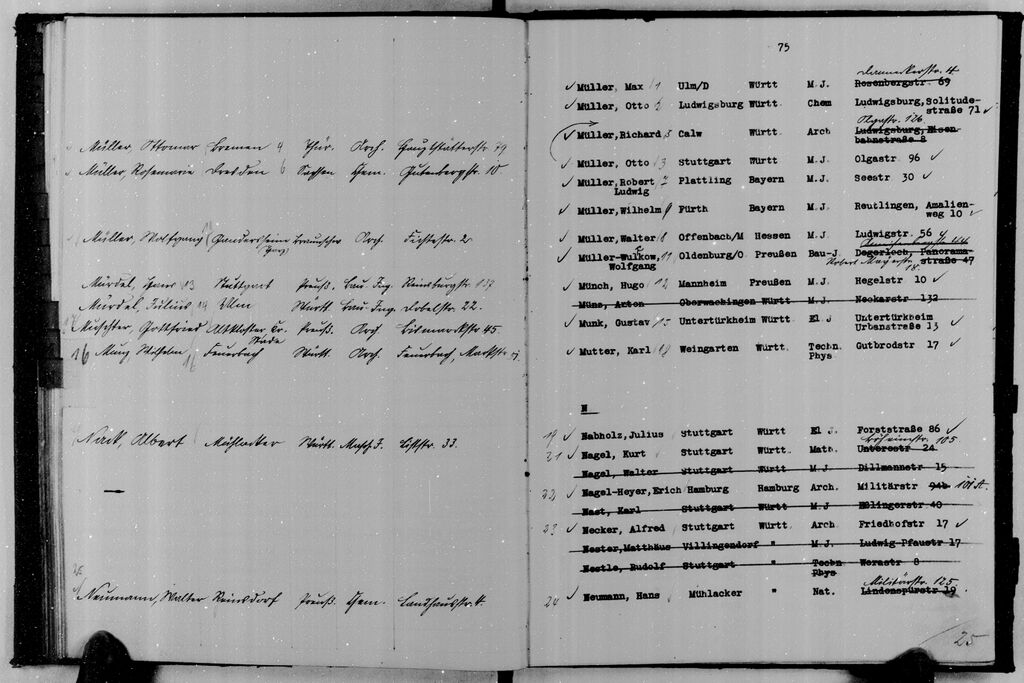 Müller, Ottomar Bremen 4 Thür. Arch. Hauptstätterstr. 79
Müller, Rosemarie Dresden 6 Sachsen Chem. Gutenbergstr. 10
Müller, Wolfgang Gandersheim Braunschw. Arch. Fichtestr. 2
(Harz)
Mündel, Hans 13 Stuttgart Preuß. Bau Ing. Reinsburgstr.
Mündel, Julius 14 Ulm Württ. Bau Ing. Tobelstr. 22.
Gottfried Altkloster Preuß. Arch. Bismarckstr 45.
Stade
16 Wilhelm Feuerbach Württ. Arch. Feuerbach, Markstr
Nack, Albert Mühlacker Württ. Masch. J. Liststr. 33.
25
Neumann, Walter Reinsdorf Preuß. Chem. Landhausstr.
75
Danneckerstr. 4
✓ Müller, Max 1 Ulm/D Württ M.J. Rosenbergstr. 69
✓ Müller, Otto 2 Ludwigsburg Württ. Chem Ludwigsburg, Solitude-
straße 71 ✓
Olgastr. 126
✓ Müller, Richard 5 Calw Württ. Arch Ludwigsburg, Eisen-
bahnstraße 8
✓ Müller, Otto 3 Stuttgart Württ M.J. Olgastr. 96 ✓
✓ Müller, Robert 7 Plattling Bayern M.J. Seestr. 30 ✓
Ludwig
✓ Müller, Wilhelm 9 Fürth Bayern M.J. Reutlingen, Amalien-
weg 10 ✓
✓ Müller, Walter 8 Offenbach/M Hessen M.J. Ludwigstr. 56
✓ Müller-Wulkow, 11 Oldenburg/O Preußen Bau-J. Degerloch, Panorama-
Wolfgang Robert Mayerstr. 18. straße 47
✓ Münch, Hugo 12 Mannheim Preußen M.J. Hegelstr 10 ✓
Müns, Anton Oberwachingen Württ M.J. Neckarstr 132
✓ Munk, Gustav 15 Untertürkheim Württ. El J Untertürkheim
Urbanstraße 13 ✓
✓ Mutter, Karl 18 Weingarten Württ. Techn. Gutbrodstr 17 ✓
Phys
N
19 ✓ Nabholz, Julius Stuttgart Württ El J. Forststraße 86 ✓
105
21 ✓ Nagel, Kurt Stuttgart Württ. Math. Unterestr 24
Nagel, Walter Stuttgart Württ. M.J Dillmannstr 15
22 ✓ Nagel-Heyer, Erich Hamburg Hamburg Arch. Militärstr 101 A.
Nast, Karl Stuttgart Württ M.J Eßlingerstr 40
23 ✓ Necker, Alfred Stuttgart Württ. Arch Friedhofstr 17 ✓
Nester, Matthäus Villingendorf " M.J. Ludwig-Pfaustr 17
Nestle, Rudolf Stuttgart " Techn Werastr 8
Phys
Militärstr. 125
24 ✓ Neumann, Hans Mühlacker " Nat. Lindenspürstr 19
25